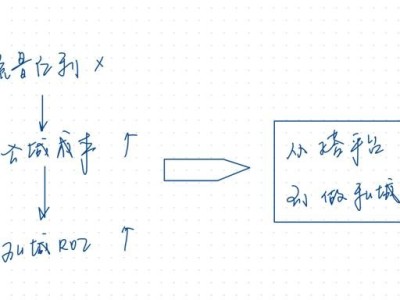 流量红利 ×
公域成本 ↑
私域ROI ↑
从搭平台
到做私域